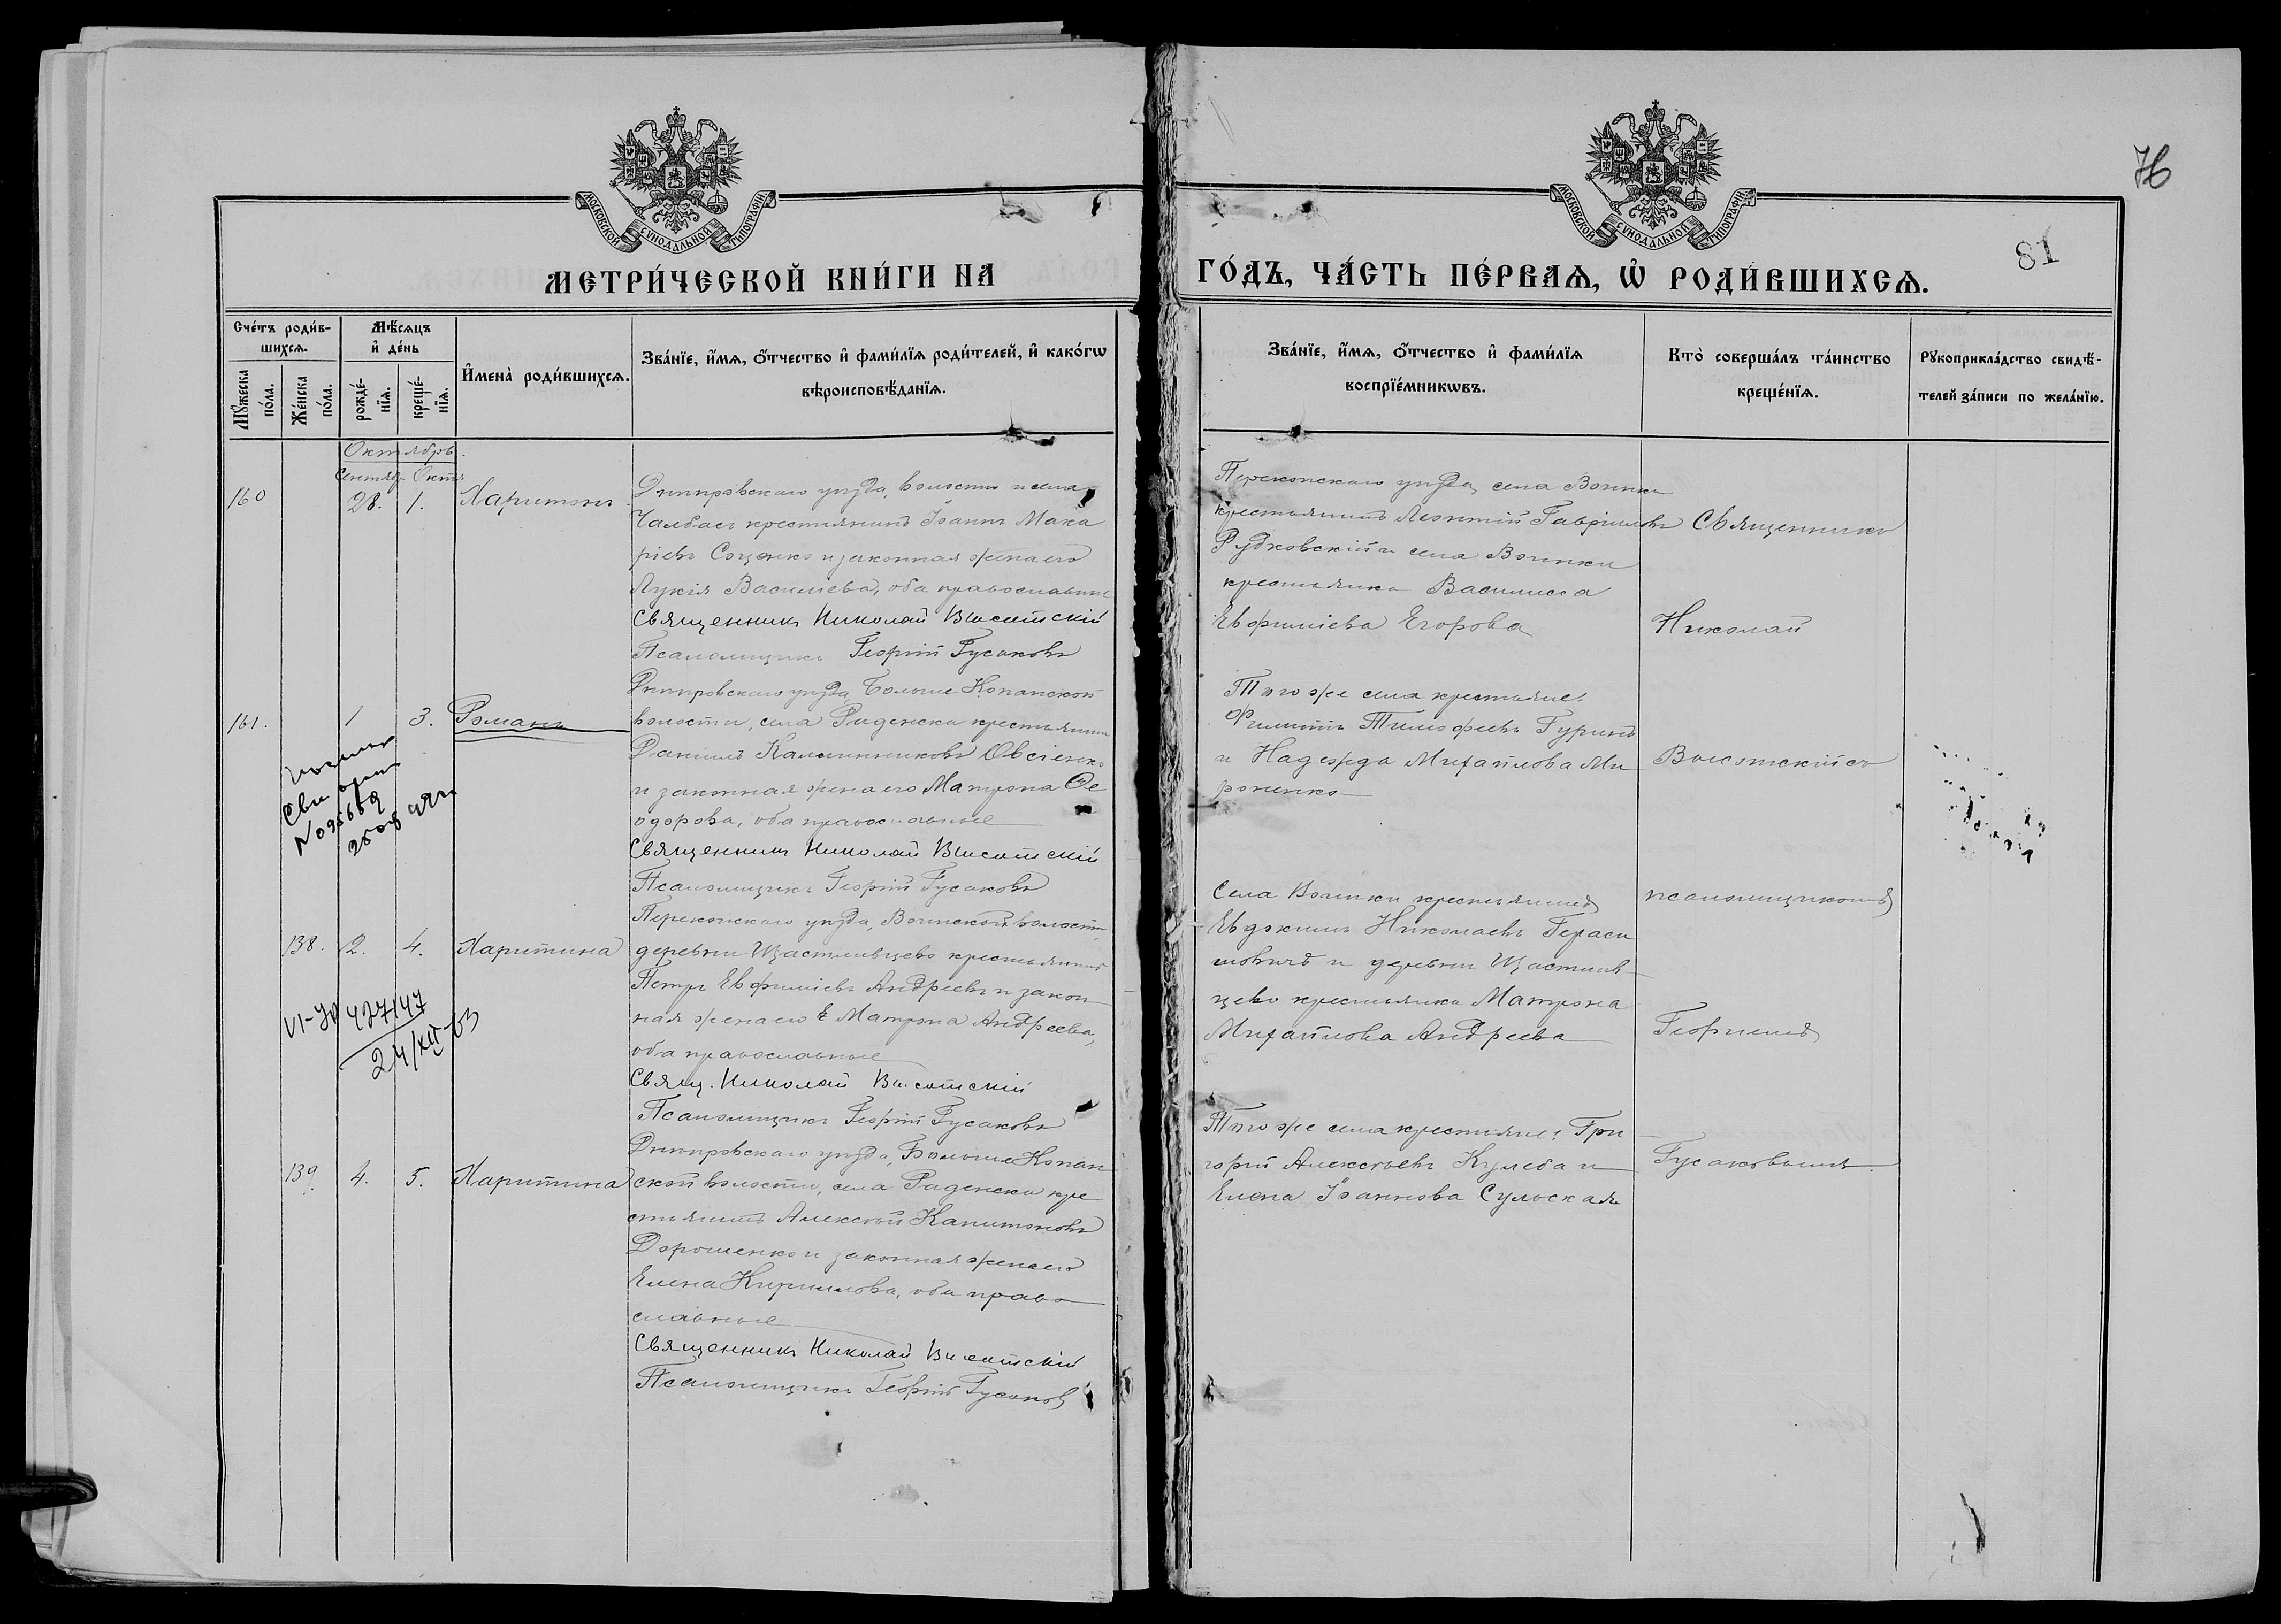 76
81
МОСКОВСКОЙ СѴНОДАЛЬНОЙ ТИПОГРАФІИ
МОСКОВСКОЙ СѴНОДАЛЬНОЙ ТИПОГРАФІИ
МЕТРИ́ЧЕСКОЙ КНИ́ГИ НА
ГО́ДЪ, ЧА́СТЬ ПЕ́РВАѦ, Ѡ҆ РОДИ́ВШИХСѦ.
Сче́тъ роди́в-
шихсѧ.
Мꙋ́жеска по́ла.
Же́нска по́ла.
Мѣ́сѧцъ
и҆ де́нь
рожде́-
нїѧ.
креще́-
нїѧ.
И҆мена̀ роди́вшихсѧ.
Зва́нїе, и҆́мѧ, ѻ҆́тчество и҆ фами́лїѧ роди́телей, и҆ како́гѡ
вѣроисповѣ́данїѧ.
Зва́нїе, и҆́мѧ, ѻ҆́тчество и҆ фами́лїѧ
воспрїе́мникѡвъ.
Кто̀ соверша́лъ та́инство
креще́нїѧ.
Рꙋкоприкла́дство свидѣ́-
телей за́писи по жела́нїю.
Октябрь.
Сентяб. Октяб
160
28. 1. Харитонъ
Днѣпровскаго уѣзда, волости и села
Чалбасъ крестьянинъ Іоаннъ Мака
ріевъ Соценко и законная жена его
Лукія Василіева, оба православные
Священникъ Николай Высотскій
Псаломщикъ Георгій Гусаковъ
Перекопскаго уѣзда, села Воинки
крестьянинъ Леонтій Гавріиловъ
Рудковскій и села Воинки
крестьянка Василисса
Евфиміева Егорова
161. 1 3. Романъ
Днѣпровскаго уѣзда Больше Копанской
волости, села Раденска крестьянинъ
Даніилъ Калинниковъ Овсіенко
и законная жена его Матрона Ѳе
одорова, оба православные
Священникъ Николай Высотскій
Псаломщикъ Георгій Гусаковъ
Того же села крестьяне:
Филиппъ Тимофеевъ Гуринъ
и Надежда Михайлова Ми
роненко
138. 2. 4. Харитина
Перекопскаго уѣзда, Воинской волости
деревни Щастливцево крестьянинъ
Петръ Евфиміевъ Андреевъ и закон
ная жена его Матрона Андреева,
оба православные
Свящ. Николай Высотскій
Псаломщикъ Георгій Гусаковъ
Села Воинки крестьянинъ
Евдокимъ Николаевъ Гераси
мовичъ и деревни Щастлив
цево крестьянка Матрона
Михайлова Андреева
VI-ЯР 427147
24/XII-53
139. 4. 5. Харитина
Днѣпровскаго уѣзда, Больше Копан
ской волости, села Раденска кре
стьянинъ Алексѣй Капитоновъ
Дорошенко и законная жена его
Елена Кириллова, оба право
славные
Священникъ Николай Высотскій
Псаломщикъ Георгій Гусаковъ
Того же села крестьяне: Гри
горій Алексѣевъ Кулеба и
Елена Іоаннова Сульская
Священникъ
Николай
Высотскій съ
псаломщикомъ
Георгіемъ
Гусаковымъ.